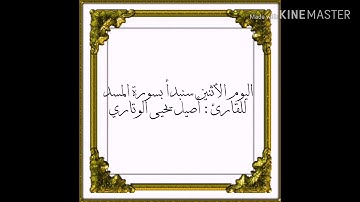 Made with KINEMASTER
اليوم الاثنين سنبدأ بسورة المسد
للقارئ : أصيل يحيى الوتاري